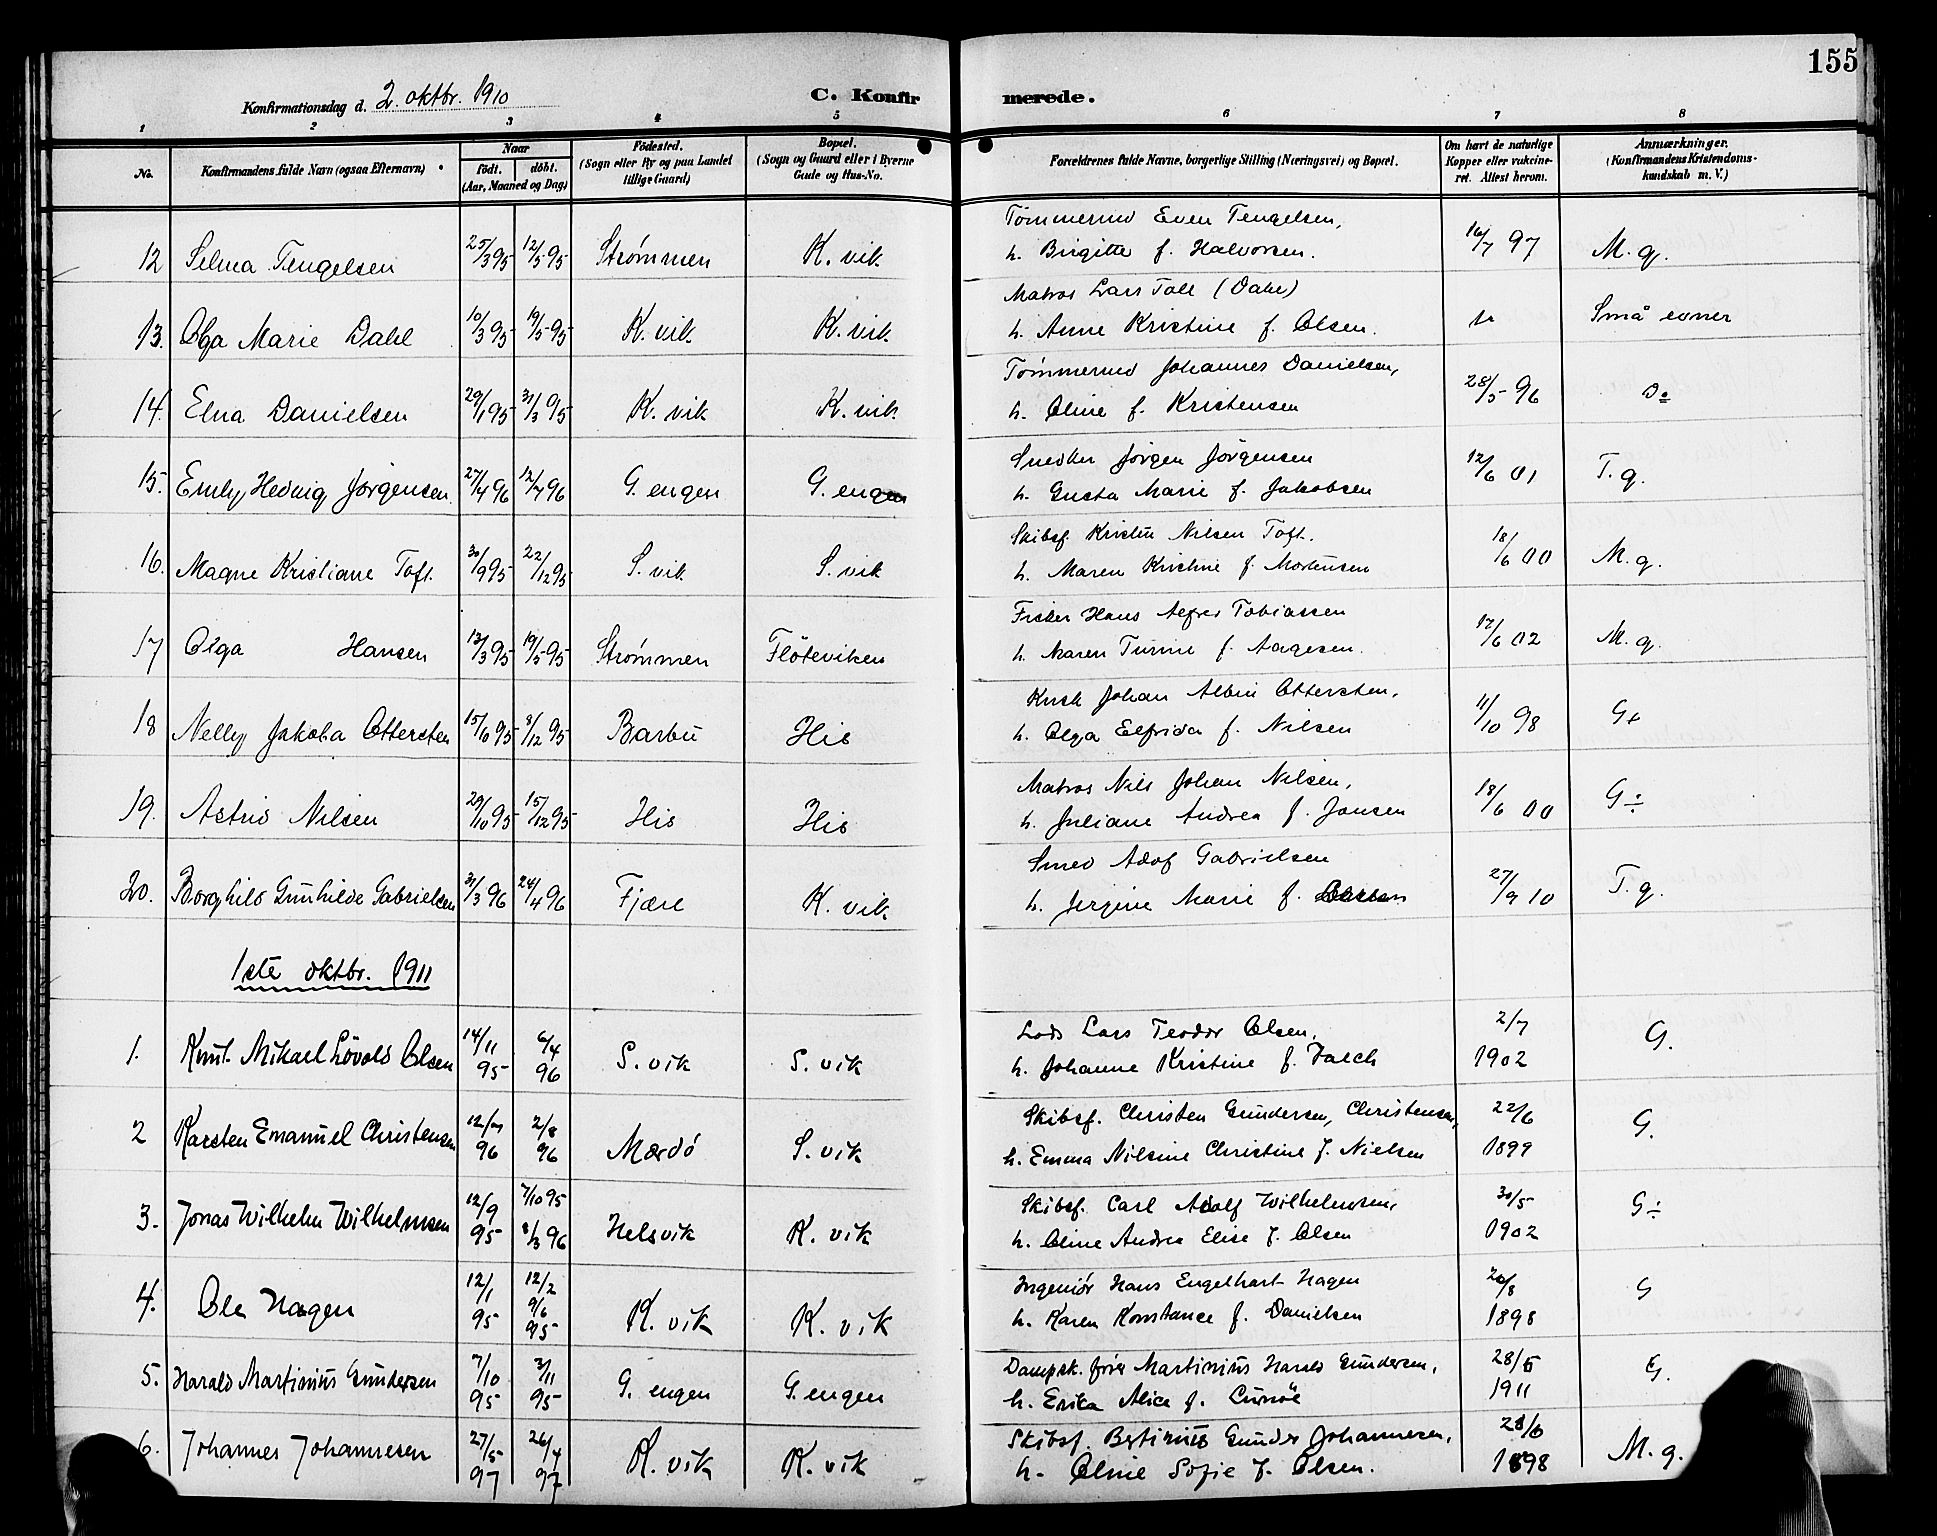 155
Konfirmationsdag d. 2. oktbr. 1910
C. Konfir merede.
1 2 3 4 5 6 7 8
No.
Konfirmandens fulde Navn (ogsaa Efternavn)
Naar
födt. döbt.
(Aar, Maaned og Dag)
Födested.
(Sogn eller By og paa Landet
tillige Gaard)
Bopæl.
(Sogn og Gaard eller i Byerne
Gade og Hus-No.
Forældrenes fulde Navne, borgerlige Stilling (Næringsvei) og Bopæl.
Om havt de naturlige
Kopper eller vakcine-
ret. Attest herom.
Anmærkninger.
(Konfirmandens Kristendoms-
kundskab m. V.)
Tømmermd Even Tengelsen,
12 Selma Tengelsen 25/3 95 12/5 95 Strømmen K. vik h. Birgitte f. Halvorsen. 16/7 97 M. g.
Matros Lars Tall (Dahl)
13. Olga Marie Dahl 10/3 95 19/5 95 K. vik K. vik h. Anne Kristine f. Olsen. Små evner
Tømmermd Johannes Danielsen,
14. Elna Danielsen 29/1 95 31/3 95 K. vik K. vik h. Oline f. Kristensen 28/5 96 Do
Snedker Jörgen Jörgensen
15. Emly Hedvig Jørgensen 27/4 96 12/7 96 G. engen G. engen h. Gusta Marie f. Jakobsen 12/6 01 T. g.
Skibsf. Kristen Nilsen Toft.
16. Magne Kristiane Toft. 30/9 95 22/12 95 S. vik S. vik h. Maren Kristine f. Mortensen 18/6 00 M. g.
Fisker Hans Alfred Tobiassen
17 Olga Hansen 13/3 95 19/5 95 Strømmen Flöteviken h. Maren Turine f. Aagesen. 17/6 02 M. g.
Kusk Johan Albin Ottersten,
18 Nelly Jakoba Ottersten 15/10 95 8/12 95 Barbu His h. Olga Elfrida f. Nilsen 11/10 98 G+
Matros Nils Johan Nilsen,
19. Astrid Nilsen 29/10 95 15/12 95 His His h. Juliane Andrea f. Jonsen 18/6 00 G÷
Smed Adof Gabrielsen
20. Borghild Gunhilde Gabrielsen 31/3 96 24/4 96 Fjære K. vik h. Jergine Marie f. 27/9 10 T. g.
1ste oktbr. 1911
Lods Lars Teodor Olsen,
1. Knut Mikael Lövold Olsen 14/11 95 6/4 96 S. vik S. vik h. Johanne Kristine f. Falch 2/7 1902 G.
Skibsf. Christen Gundersen, Christensen,
2 Karsten Emanuel Christensen 12/7 96 2/8 96 Mærdö S. vik h. Emma Nilsine Christine f. Nielsen 22/6 1899 G.
Skibsf. Carl Adolf Wilhelmsen,
3. Jonas Wilhelm Wilhelmsen 12/9 95 7/10 95 8/3 96 Helsvik K. vik h. Oline Andrea Elise f. Olsen 30/5 1902 G÷
Ingeniör Hans Engelhart Hagen
4. Ole Hagen 12/1 95 12/2 9/6 95 K. vik K. vik h. Karen Konstance f. Danielsen 20/8 1898 G
Dampsk. förer Martinius Harald Gundersen,
5. Harald Martinius Gundersen 7/10 95 3/11 95 G. engen G. engen h. Erika Alice f. 28/5 1911 G.
Skibsf. Bertinius Gunder Johannesen,
6. Johannes Johannesen 27/5 97 26/7 97 K. vik K. vik h. Oline Sofie f. Olsen. 28/6 1898 M. g.